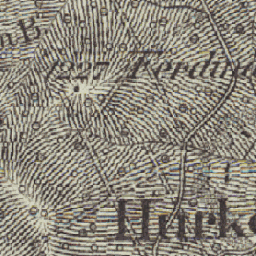 n B.
1227 Ferdina
Hurk